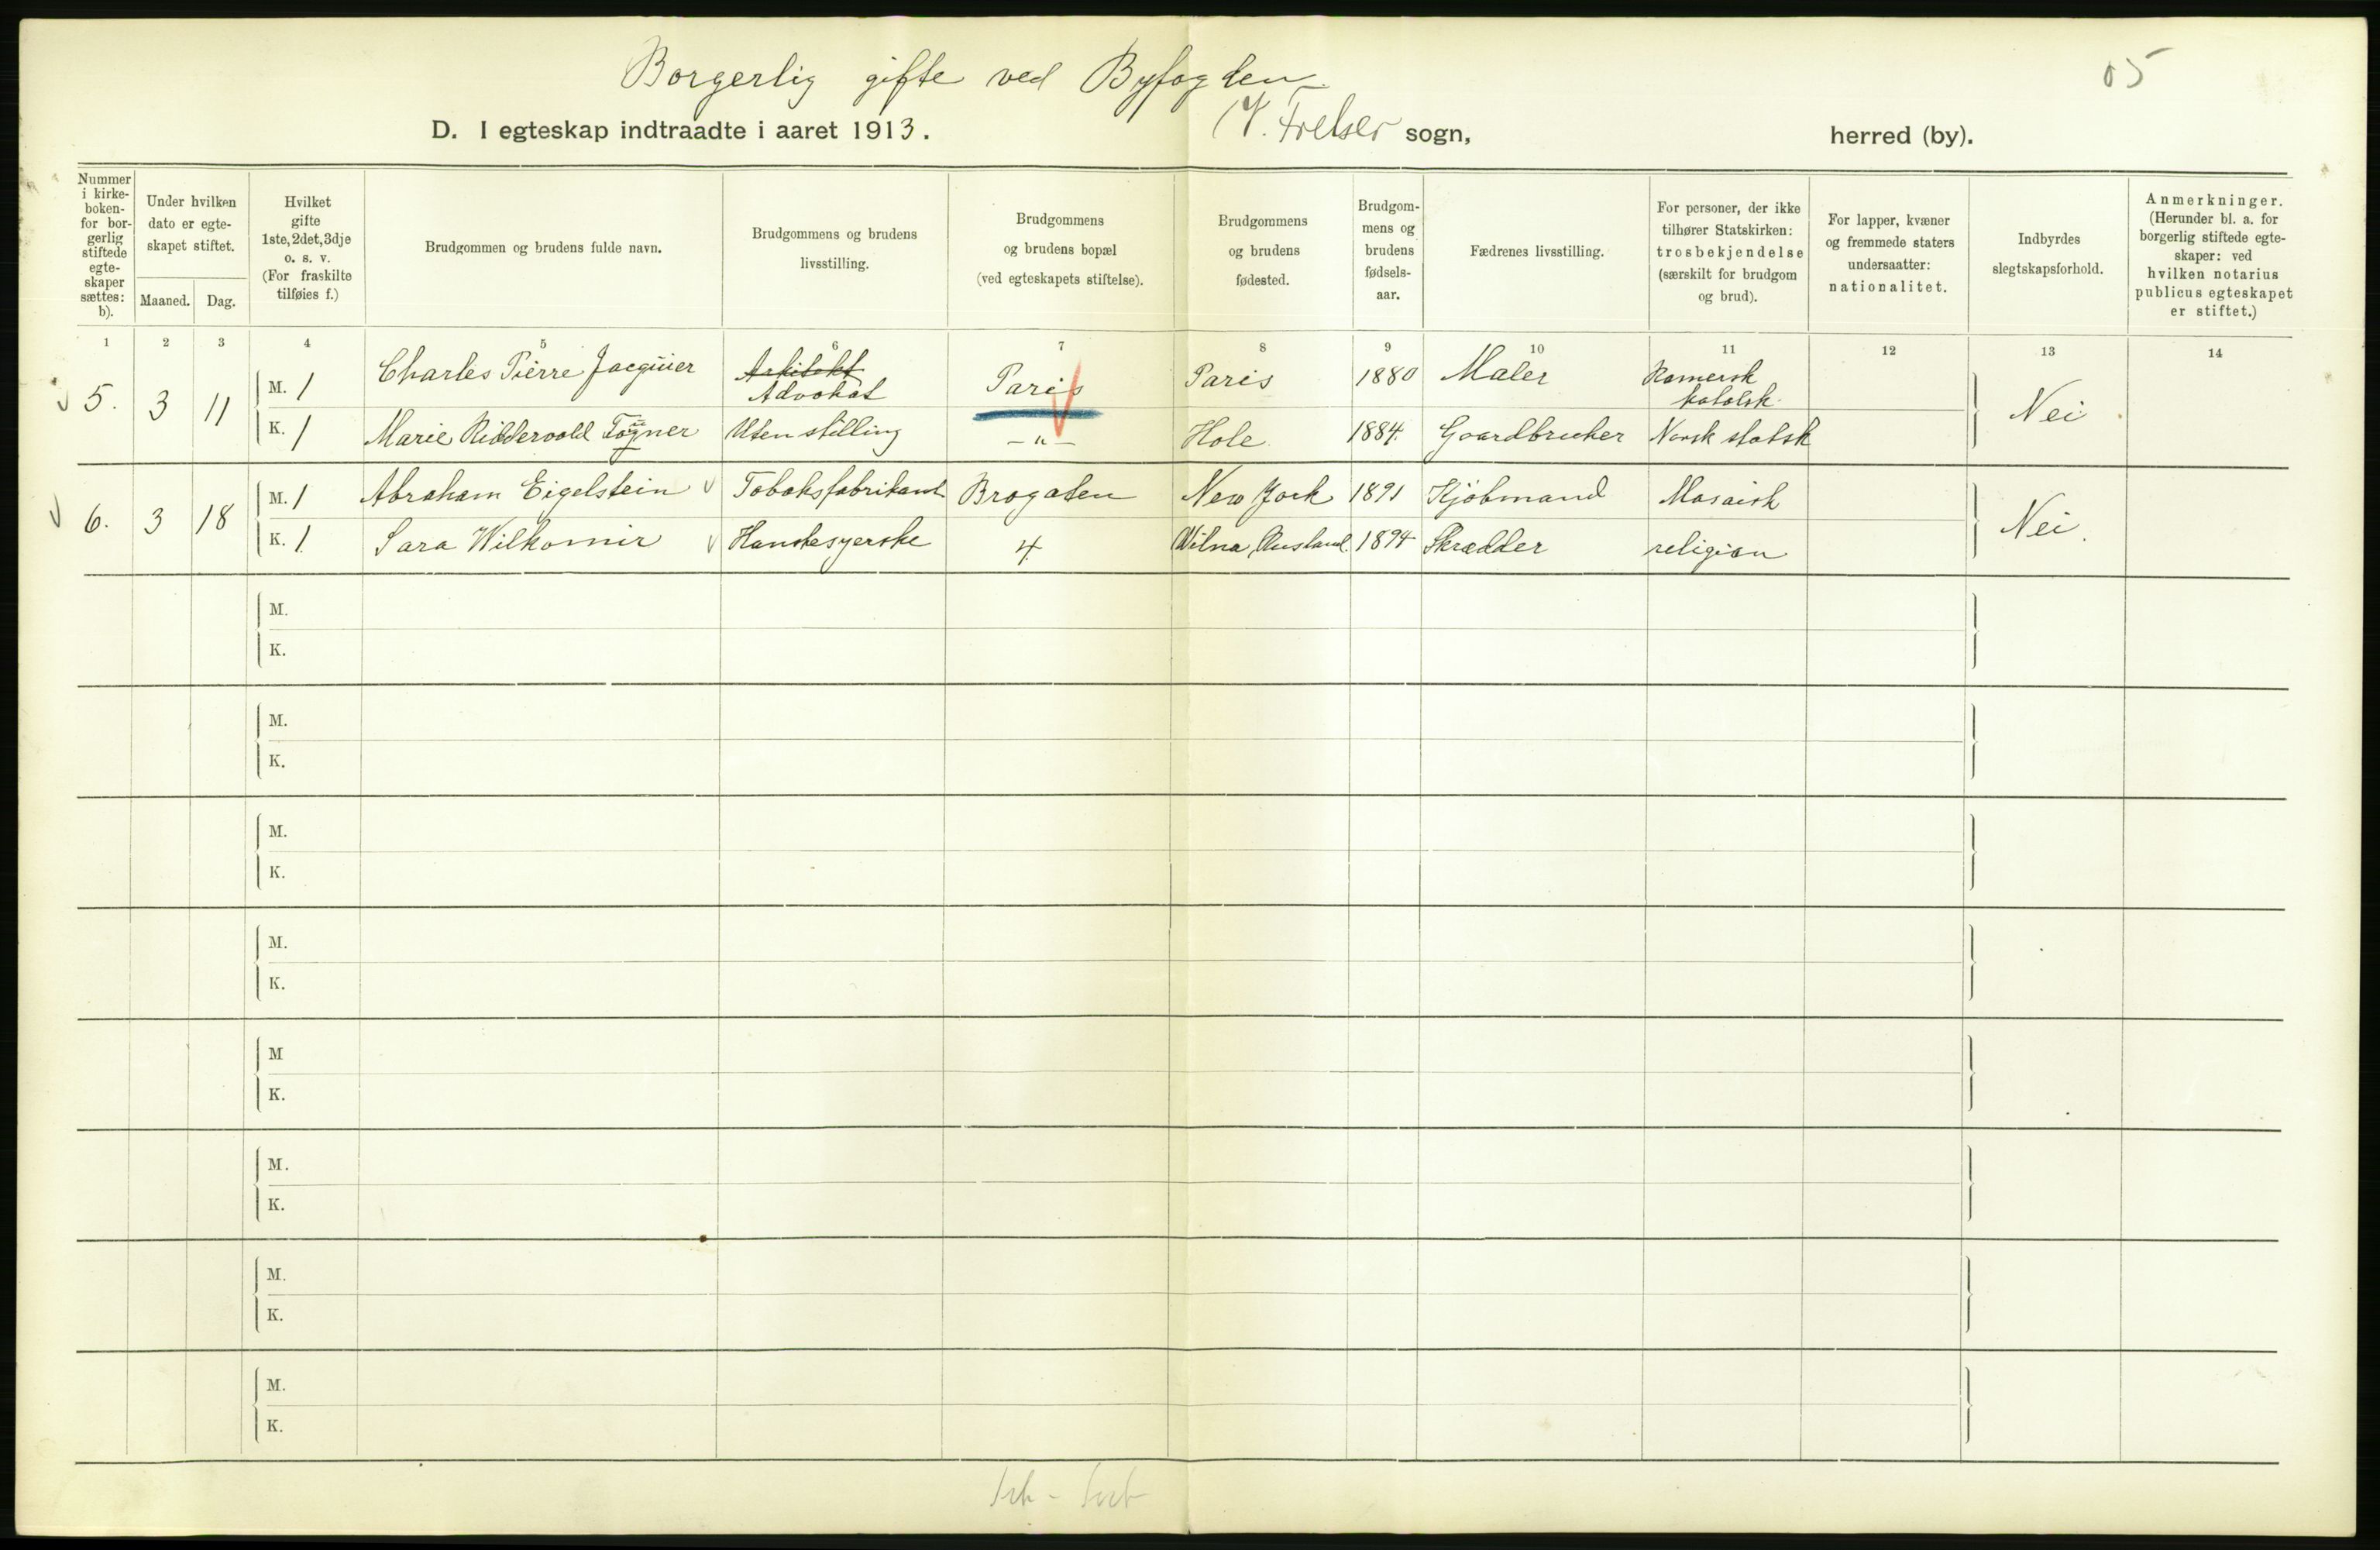 Borgerlig gifte ved Byfogden
05
D. I egteskap indtraadte i aaret 1913.
V. Frelser sogn,
herred (by).
Nummer
i kirke-
boken-
for bor-
gerlig
stiftede
egte-
skaper
sættes:
b).
Under hvilken
dato er egte-
skapet stiftet.
Maaned.
Dag.
Hvilket
gifte
1ste, 2det, 3dje
o. s. v.
(For fraskilte
tilføies f.)
Brudgommen og brudens fulde navn.
Brudgommens og brudens
livsstilling.
Brudgommens
og brudens bopæl
(ved egteskapets stiftelse).
Brudgommens
og brudens
fødested.
Brudgom-
mens og
brudens
fødsels-
aar.
Fædrenes livsstilling.
For personer, der ikke
tilhører Statskirken:
trosbekjendelse
(særskilt for brudgom
og brud).
For lapper, kvæner
og fremmede staters
undersaatter:
nationalitet.
Indbyrdes
slegtskapsforhold.
Anmerkninger.
(Herunder bl. a. for
borgerlig stiftede egte-
skaper: ved
hvilken notarius
publicus egteskapet
er stiftet.)
1 2 3 4 5 6 7 8 9 10 11 12 13 14
5. 3 11
M. 1 Charles Pierre Jacquier Arkitekt
Advokat Paris Paris 1880 Maler Romersk
katolsk
K. 1 Marie Riddervold Togner Uten stilling -"- Hole. 1884. Gaardbruker Norsk statsk
Nei
6. 3 18
M. 1 Abraham Eigelstein Tobaksfabrikant Brogaten New York 1891 Kjøbmand Mosaisk
K. 1. Sara Wilkomir Hanskesyerske 4. Wilna, Rusland. 1894 Skrædder religion
Nei.
M.
K.
M.
K.
M.
K.
M.
K.
M
K.
M.
K.
M.
K.
M.
K.